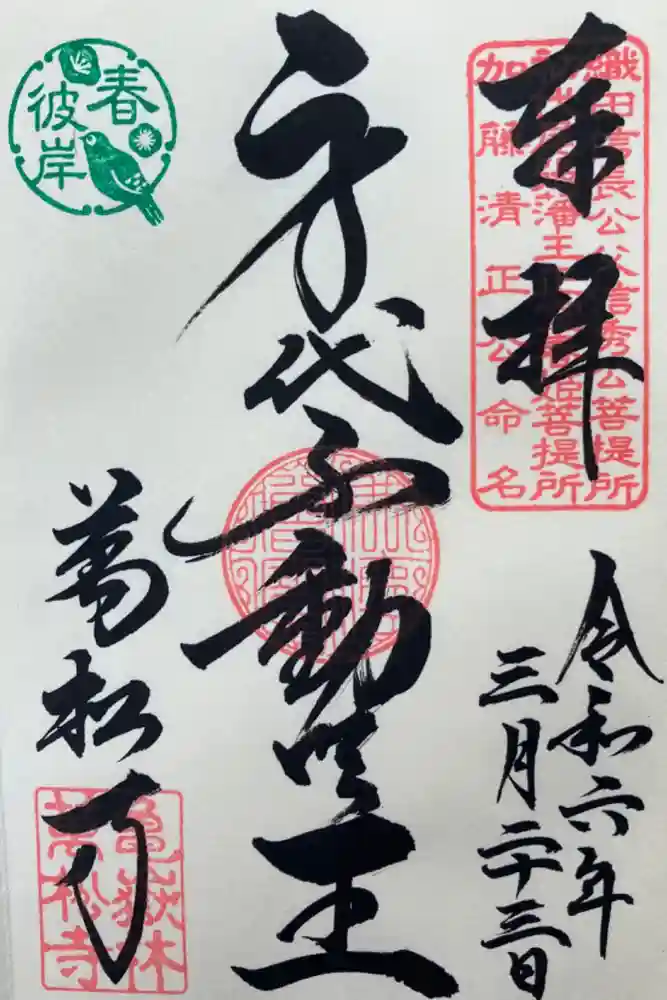 奉拝
織田信長公父信秀公菩提所
菩提所
加藤清正公命名
令和六年
三月二十三日
身代不動明王
萬松寺
亀嶽林
萬松寺
春
彼岸